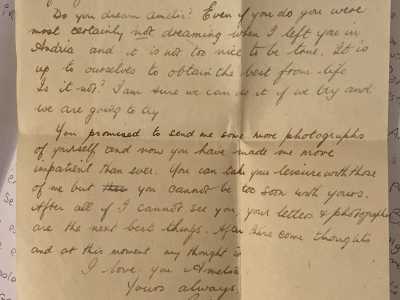 Do you dream Amelia? Even if you do you were
most certainly not dreaming when I left you in
Andria and it is not too nice to be true. It is
up to ourselves to obtain the best from life
Is it not? I am sure we can do it if we try and
we are going to try
You promised to send me some more photographs
of yourself and now you have made me more
impatient than ever. You can take your leisure with those
of me but you cannot be too soon with yours.
After all if I cannot see you, your letters & photographs
are the next best things. After these come thoughts
and at this moment my thought is
I love you Amelia
Yours always